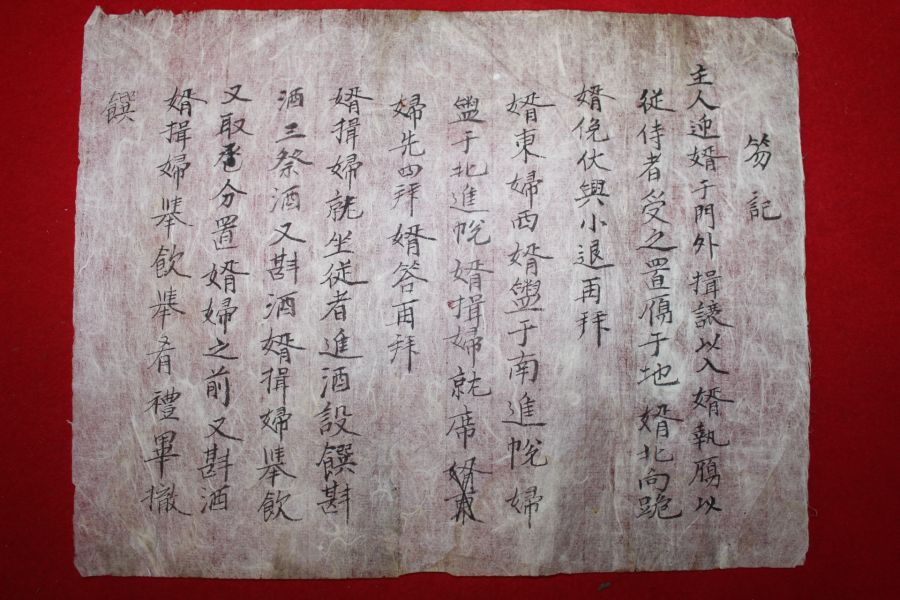 笏記
主人迎婿于門外揖讓以入婿執鴈以
從侍者受之置鴈于地婿北向跪
婿俛伏興小退再拜
婿東婦西婿盥于南進帨婦
盥于北進帨婿揖婦就席
婦先四拜婿答再拜
婿揖婦就坐從者進酒設饌斟
酒三祭酒又斟酒婿揖婦擧飮
又取巹分置婿婦之前又斟酒
婿揖婦擧飮擧肴禮畢撤
饌